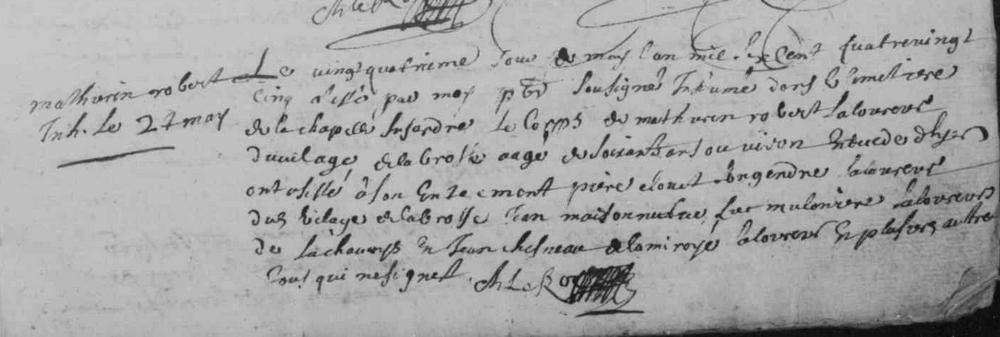 mathurin robert
Inh. Le 24 may
Le vingt quatrieme Jour de may l'an mil six cent quatrevingt
cinq a esté par moy pbre sousigné Inhumé dans le cimetiere
de la chapelle le corps de mathurin robert laboureur
du vilage de la brosse aagé de soixante ans ou viron decedé d'hyer
ont assisté à son enterrement pierre son gendre laboureur
dud vilage de la brosse Jean maisonneufve laboureur
de Jean chesneau de la laboureur et plusieurs autres
tous qui ne signet. Ch Le Roy